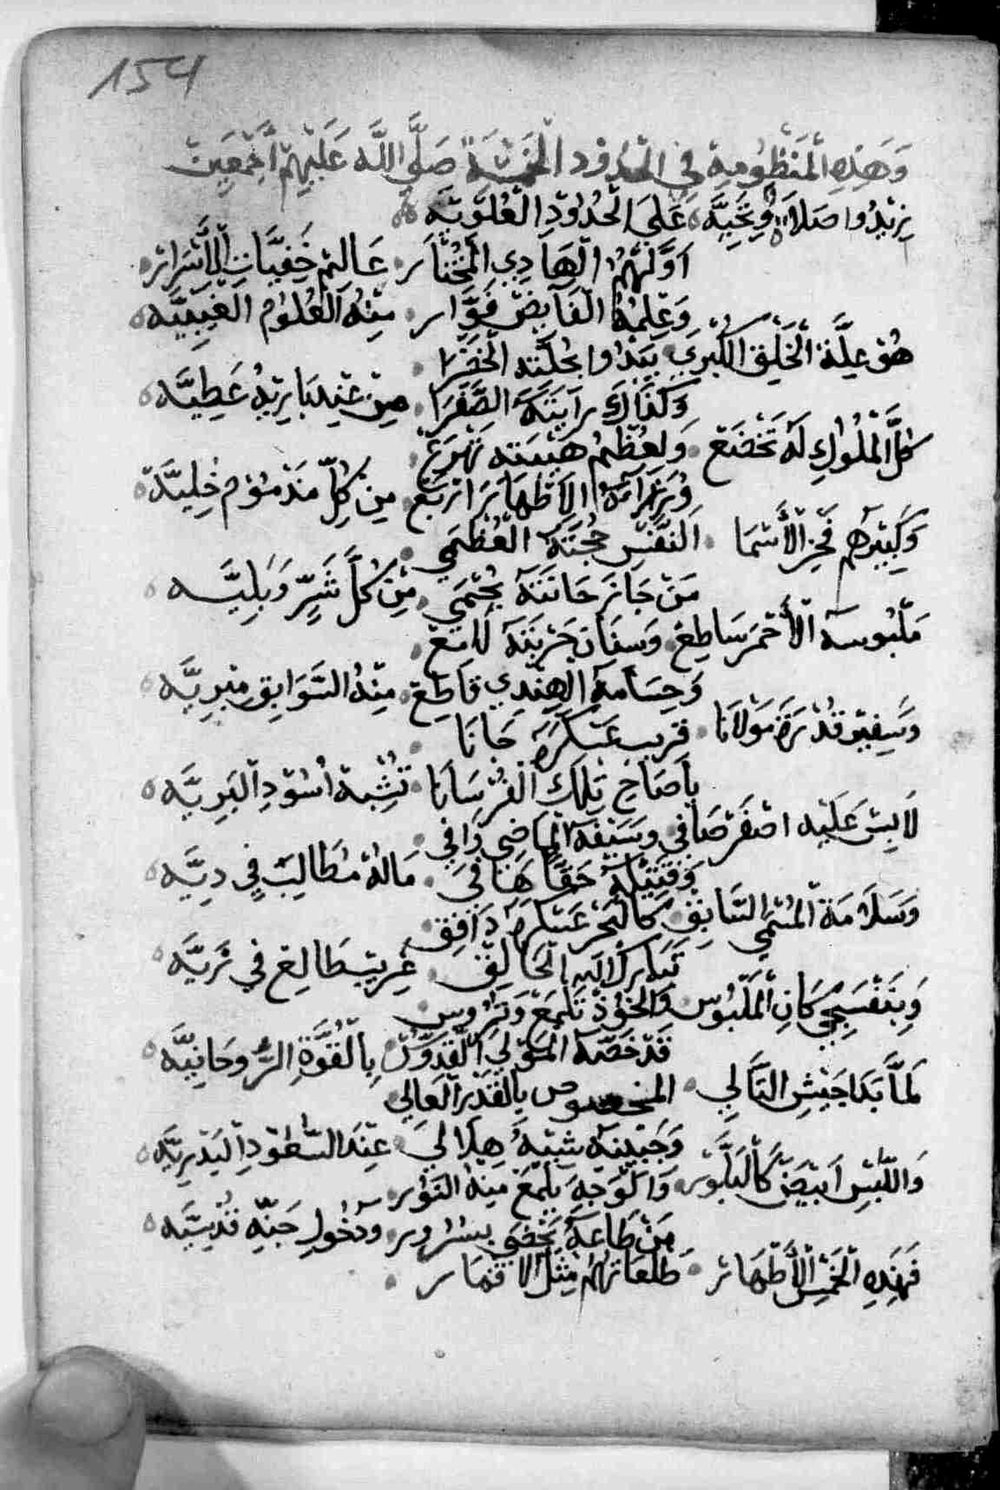 154
وَهَذِهِ الْمَنْظُومِة فِي الحُدُوْدِ الْخَمْسَة صَلَّى اللَّه عَلَيْهِمْ أَجْمَعِين
زِيْدُوا صَلَاة وِتَحِيَّه عَلَى الْحُدُوْدِ الْعُلْوِيَّه
اَوَّلْهُم الْهَادِي الْمُخْتَار عَالِم خَفِيَّاتِ الْأَسْرَار
وَعِلْمُهُ الْفَايِض فَوَّار مِنْهُ الْعُلُوْم الْغَيْبِيَّه
هُوْ عِلَّة الْخَلْق الْكُبْرَى يَبْدُوا بحُلَّته الْخَضْرَا
وَكَذَاكَ رَايَتَهُ الصَّفْرَا مِنْ عِنْد بَارِيهُ عَطِيَّه
كُلّ الْمُلُوْكِ لَهُ تَخْضَع وَلعُظْم هَيْبَته تَهْرَع
وُزَرَاهُ الاَطْهَار اَرْبَع مِنْ كُلّ مَذْمُوْم خَلِيَّة
وَكَبِيْرهم فَخْر الْأَسْمَا اَلنَّفْس حُجَّتَهُ الْعُظْمَى
مَنْ جَاز حَانَتَهُ يُحْمَى مِن كُلّ شَرٍّ وَبَلِيَّه
مَلْبُوسه الْأَحْمَر سَاطِع وَسِنَان حَرْبَتهُ لَامِع
وَحِسَامه الْهِنْدِي قَاطِع مِنْهُ السَّوَابِق مبْرِيَّه
وَسَفِيْر قُدْرَة مَوْلَانَا قَرِيب عَسْكَرهُ جَانَا
يَاصَاح تِلْكَ الْفُرْسَانَا تُشْبِه اُسُوْدِ الْبَرِيَّه
لَابِس عَلَيْه اصْفَر صَافِي وسَيْفهُ الْمَاضِي وَافِي
وَقَتِيْلهُ حَقًّا هَافِي مَالهُ مُطَالِب فِي دِيَّه
وَسَلَامَة الْمُسْمَى السَّابِق كَالْبَحْر عَسْكَره دَافِق
تَبَارك الرب الْخَالِق عَرِيب طَالِع فِي ثَرِيَّه
وَبِنَفْسَجِي كَانِ الْمَلْبُوس وَالْخُوْذ تَلْمَعْ وَتروس
قَدْ خَصّه الْمَوْلَى الْقَدُّوْس بِالْقُوَّةِ الرُّوحَانِيَّه
لَمَّا بَدَا جَيْشِ التَّالِي المخصوص بِالْقَدْرِ الْعَالِي
وَجَبِينه شِبْهُ هِلَالِي عِنْدَ السُّعُوْدِ الْبَدْرِيَّه
وَاللِّبْسِ اَبْيَض كَالْبَلَّوْر وَالْوَجِه يَلْمَعْ مِنْهُ النُوْر
مَنْ طَاعَهُ يَحْظَى بِسُرُور وَدُخُولِ جَنّه قُدْسِيَّه
فَهَذِهِ الْخَمْس الْأَطْهَار طَلْعَاتهُم مِثْل الاَقْمَار